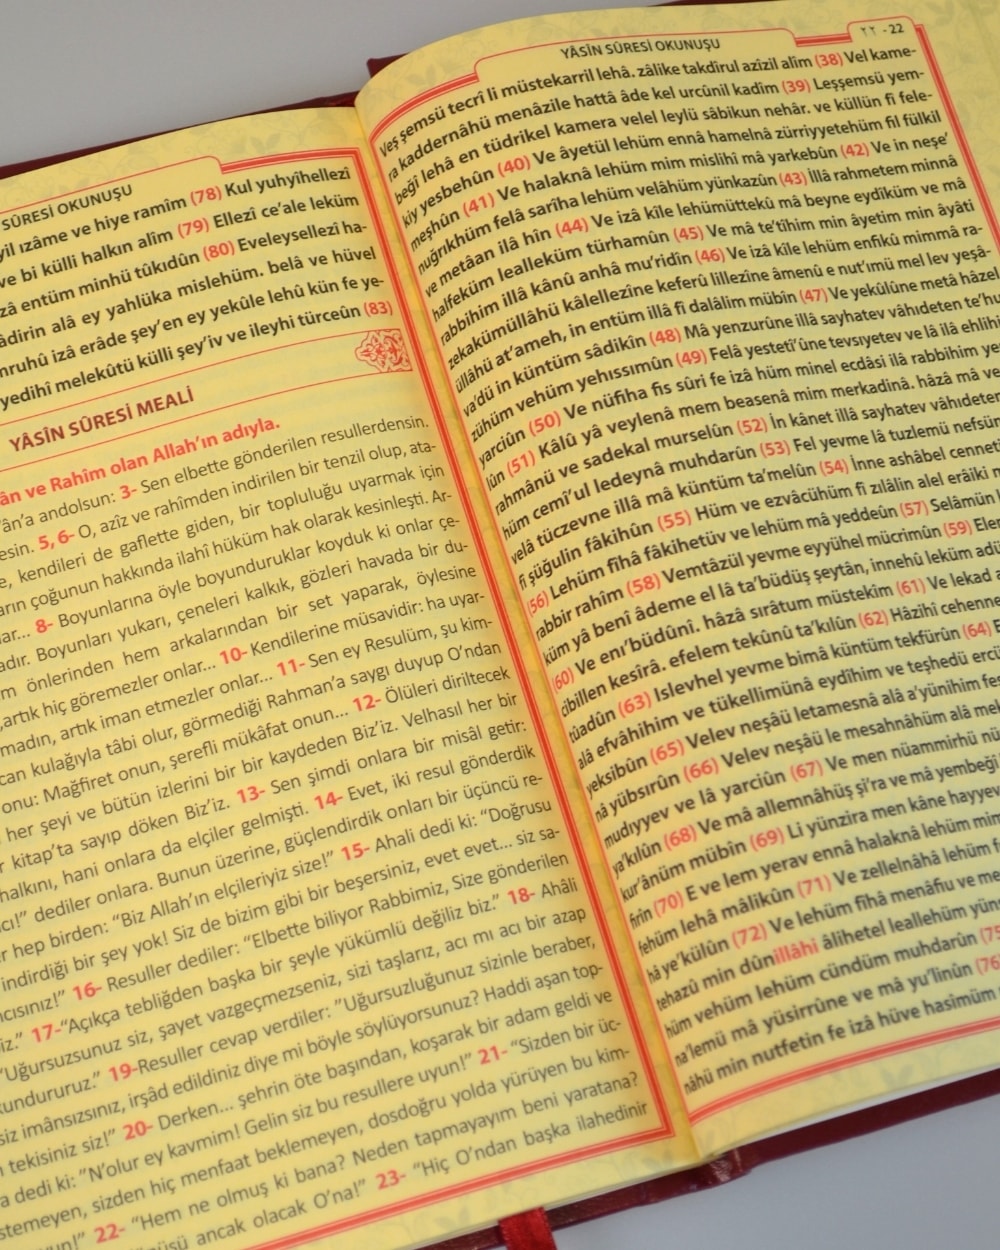 SÛRESİ OKUNUŞU
yil ızâme ve hiye ramîm (78) Kul yuhyîhellezî
ve bi külli halkın alîm (79) Ellezî ce’ale leküm
zâ entüm minhü tûkıdûn (80) Eveleysellezî ha-
âdirin alâ ey yahlüka mislehüm. belâ ve hüvel
mruhû izâ erâde şey’en ey yekûle lehû kün fe ye-
yedihî melekûtü külli şey’iv ve ileyhi türceûn (83)
YÂSÎN SÛRESİ MEALİ
ân ve Rahîm olan Allah’ın adıyla.
’ân’a andolsun: 3- Sen elbette gönderilen resullerdensin.
esin. 5, 6- O, azîz ve rahîmden indirilen bir tenzil olup, ata-
e, kendileri de gaflette giden, bir topluluğu uyarmak için
arın çoğunun hakkında ilahî hüküm hak olarak kesinleşti. Ar-
ar... 8- Boyunlarına öyle boyunduruklar koyduk ki onlar çe-
adır. Boyunları yukarı, çeneleri kalkık, gözleri havada bir du-
m önlerinden hem arkalarından bir set yaparak, öylesine
artık hiç göremezler onlar... 10- Kendilerine müsavidir: ha uyar-
madın, artık iman etmezler onlar... 11- Sen ey Resulüm, şu kim-
can kulağıyla tâbi olur, görmediği Rahman’a saygı duyup O’ndan
onu: Mağfiret onun, şerefli mükâfat onun... 12- Ölüleri diriltecek
her şeyi ve bütün izlerini bir bir kaydeden Biz’iz. Velhasıl her bir
r kitap’ta sayıp döken Biz’iz. 13- Sen şimdi onlara bir misâl getir:
halkını, hani onlara da elçiler gelmişti. 14- Evet, iki resul gönderdik
cı!” dediler onlara. Bunun üzerine, güçlendirdik onları bir üçüncü re-
r hep birden: “Biz Allah’ın elçileriyiz size!” 15- Ahali dedi ki: “Doğrusu
indirdiği bir şey yok! Siz de bizim gibi bir beşersiniz, evet evet... siz sa-
ncısınız!” 16- Resuller dediler: “Elbette biliyor Rabbimiz, Size gönderilen
iz.” 17-“Açıkça tebliğden başka bir şeyle yükümlü değiliz biz.” 18- Ahâli
“Uğursuzsunuz siz, şayet vazgeçmezseniz, sizi taşlarız, acı mı acı bir azap
kundururuz.” 19-Resuller cevap verdiler: “Uğursuzluğunuz sizinle beraber,
siz imânsızsınız, irşâd edildiniz diye mi böyle söylüyorsunuz? Haddi aşan top-
n tekisiniz siz!” 20- Derken... şehrin öte başından, koşarak bir adam geldi ve
a dedi ki: “N’olur ey kavmim! Gelin siz bu resullere uyun!” 21- “Sizden bir üc-
stemeyen, sizden hiç menfaat beklemeyen, dosdoğru yolda yürüyen bu kim-
yun!” 22- “Hem ne olmuş ki bana? Neden tapmayayım beni yaratana?
ancak olacak O’na!” 23- “Hiç O’ndan başka ilahedinir
٢٢ - 22
YÂSÎN SÛRESİ OKUNUŞU
Veş şemsü tecrî li müstekarril lehâ. zâlike takdîrul azîzil alîm (38) Vel kame-
ra kaddernâhü menâzile hattâ âde kel urcûnil kadîm (39) Leşşemsü yem-
beğî lehâ en tüdrikel kamera velel leylü sâbikun nehâr. ve küllün fî fele-
kiy yesbehûn (40) Ve âyetül lehüm ennâ hamelnâ zürriyyetehüm fil fülkil
meşhûn (41) Ve halaknâ lehüm mim mislihî mâ yarkebûn (42) Ve in neşe’
nuğrıkhüm felâ sarîha lehüm velâhüm yünkazûn (43) İllâ rahmetem minnâ
ve metâan ilâ hîn (44) Ve izâ kîle lehümüttekû mâ beyne eydîküm ve mâ
halfeküm lealleküm türhamûn (45) Ve mâ te’tîhim min âyetim min âyâti
rabbihim illâ kânû anhâ mu’ridîn (46) Ve izâ kîle lehüm enfikû mimmâ ra-
zekakümüllâhü kâlellezîne keferû lillezîne âmenû e nut’ımü mel lev yeşâ-
üllâhü at’ameh, in entüm illâ fî dalâlim mübîn (47) Ve yekûlûne metâ hâzel
va’dü in küntüm sâdikîn (48) Mâ yenzurûne illâ sayhatev vâhıdeten te’hu
zühüm vehüm yehıssımûn (49) Felâ yestetî’ûne tevsıyetev ve lâ ilâ ehlihi
yarciûn (50) Ve nüfiha fis sûri fe izâ hüm minel ecdâsi ilâ rabbihim ye
lûn (51) Kâlû yâ veylenâ mem beasenâ mim merkadinâ. hâzâ mâ ve
rahmânü ve sadekal murselûn (52) İn kânet illâ sayhatev vâhıdeten
hüm cemî’ul ledeynâ muhdarûn (53) Fel yevme lâ tuzlemü nefsün
velâ tüczevne illâ mâ küntüm ta’melûn (54) İnne ashâbel cenneti
fî şüğulin fâkihûn (55) Hüm ve ezvâcühüm fî zılâlin alel erâiki m
(56) Lehüm fîhâ fâkihetüv ve lehüm mâ yeddeûn (57) Selâmün
rabbir rahîm (58) Vemtâzül yevme eyyühel mücrimûn (59) Elem
küm yâ benî âdeme el lâ ta’büdüş şeytân, innehû leküm adü
(60) Ve enı’büdûnî. hâzâ sırâtum müstekîm (61) Ve lekad a
cibillen kesîrâ. efelem tekûnû ta’kılûn (62) Hâzihî cehenne
tûadûn (63) Islevhel yevme bimâ küntüm tekfürûn (64) E
alâ efvâhihim ve tükellimünâ eydîhim ve teşhedü ercü
yeksibûn (65) Velev neşâü letamesnâ alâ a’yünihim fes
nâ yübsırûn (66) Velev neşâü le mesahnâhüm alâ mek
mudıyyev ve lâ yarciûn (67) Ve men nüammirhü nü
ya’kılûn (68) Ve mâ allemnâhüş şi’ra ve mâ yembeğî
kur’ânüm mübîn (69) Li yünzira men kâne hayyev
firîn (70) E ve lem yerav ennâ halaknâ lehüm mim
fehüm lehâ mâlikûn (71) Ve zellelnâhâ lehüm f
hâ ye’külûn (72) Ve lehüm fîhâ menâfiu ve me
tehazû min dûnillâhi âlihetel leallehüm yün
hüm vehüm lehüm cündüm muhdarûn (75
na’lemü mâ yüsirrûne ve mâ yu’linûn (76
nâhü min nutfetin fe izâ hüve hasîmüm